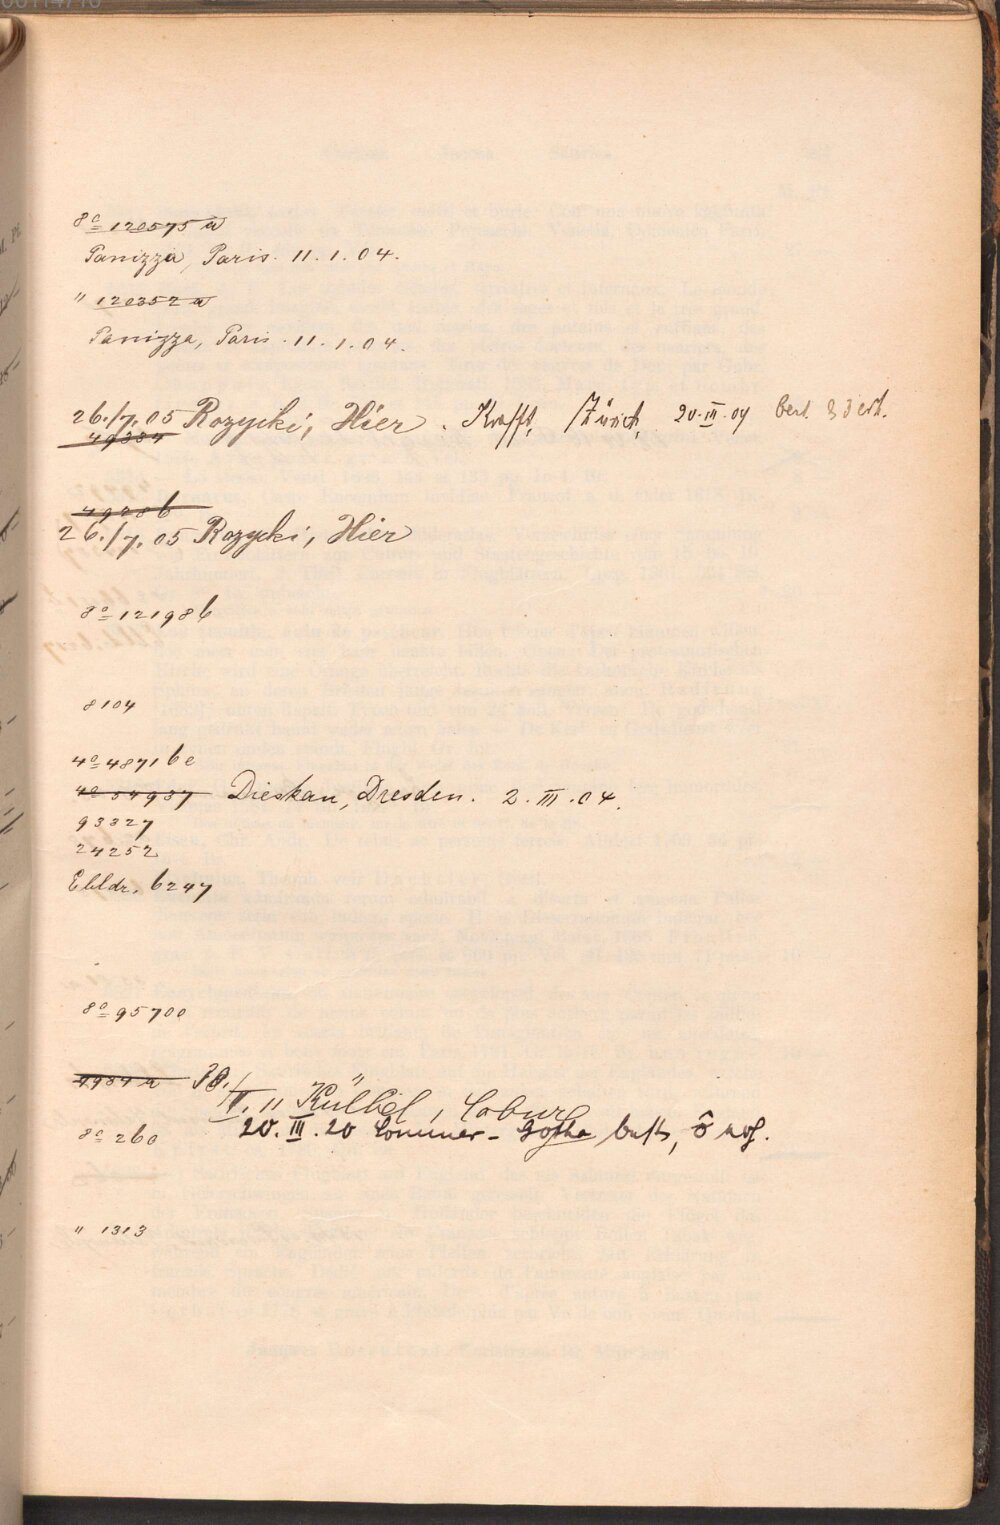 8° 120575 a
Panizza, Paris. 11.1.04.
" 120352 a
Panizza, Paris. 11.1.04.
26./7.05 Rozycki, Hier. Krafft, Zürich, 20.III.04
49384
49286
26./7.05 Rozycki, Hier
8° 121986
8104
4° 4871 be
4° 54937 Dieskau, Dresden. 2.III.04.
93327
24252
Ebldr. 6247
8° 95700
4984 a 30./V.11 Külbel, Coburg
20.III.20 Sommer-Gotha
8° 260
" 1313